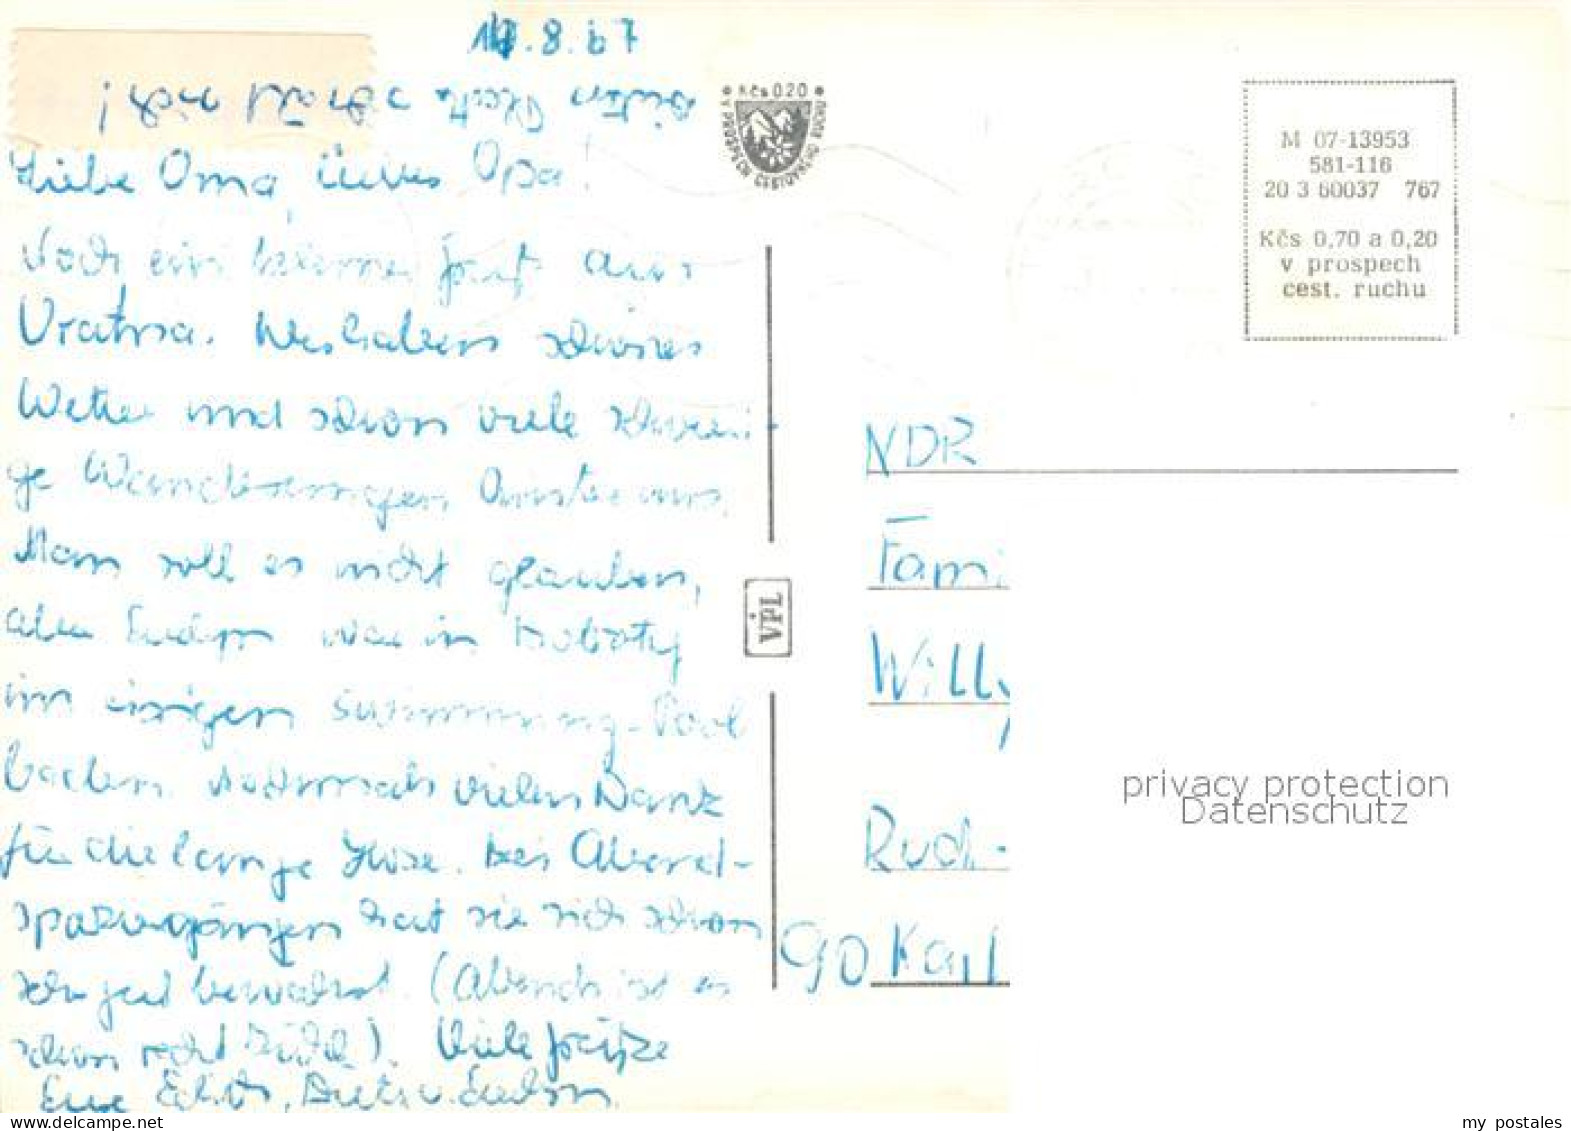 .8.67
Liebe Oma, lieber Opa!
Noch ein kleiner Gruß aus
Vratna. Wir haben schönes
Wetter und schon viele schwieri-
ge Wanderungen hinter uns.
Man soll es nicht glauben,
aber Evelyn war in
im eisigen Swimming-Pool
baden. Nochmals vielen Dank
für die lange Hose. Bei Abend-
spaziergängen hat sie sich schon
sehr gut bewährt. (Abends ist es
schon recht kühl). Viele Grüße
Eure Edith, Dieter u. Evelyn.
Kčs 0.20
V PROSPĚCH CESTOVNÍHO RUCHU
M 07-13953
581-116
20 3 60037 767
Kčs 0,70 a 0,20
v prospěch
cest. ruchu
VPL
Fami
Willy
Rud
90 Karl
privacy protection
Datenschutz
my postales